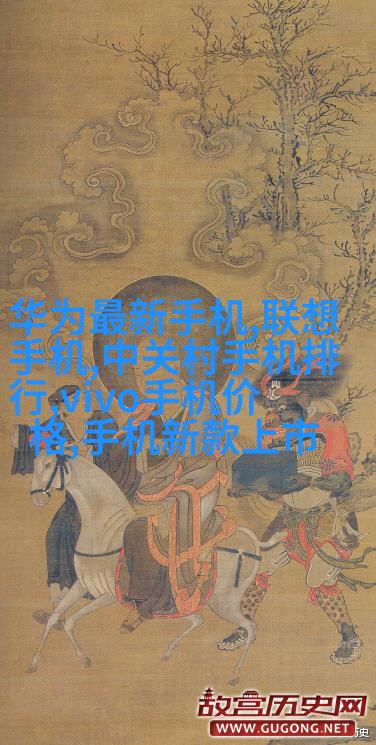 华为最新手机,联想
手机,中关村手机排
行,vivo手机价
格,手机新款上市
故宫历史网
WWW.GUGONG.NET
历史